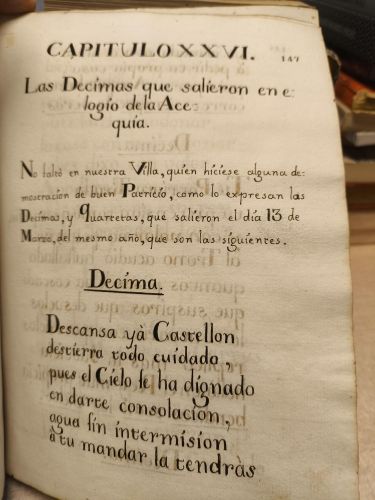 CAPITULO XXVI.
147
Las Decimas que salieron en e-
logio de la Ace
quia.
No faltó en nuestra Villa, quien hiciese alguna de-
mostracion de buen Patricio, como lo expresan las
Decimas, y Quartetas, que salieron el dia 13 de
Marzo, del mesmo año, que son las siguientes.
Decima.
Descansa yà Castellon
destierra todo cuidado,
pues el Cielo se ha dignado
en darte consolacion,
agua sin intermision
à tu mandar la tendràs